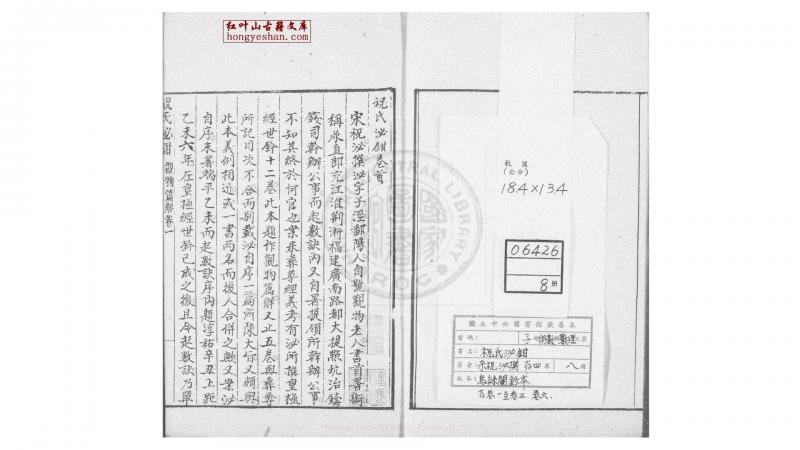 红叶山古籍文库
hongyeshan.com
祝氏泌鉗卷首
宋祝泌撰泌字子涇鄱陽人自號觀物老人書首署銜
稱承直郎充江淮荆浙福建廣南路都大提㸃坑冶鑄
錢司幹辦公事而起數訣內又自署提領所幹辦公事
不知其終於何官也案朱彝尊經義考有泌所撰皇極
經世鈐十二卷此本題作觀物篇解又止五卷與彝尊
所記目次不合而别載泌自序一篇所陳大㫖又頗與
此本義例相近或一書兩名而後人合併之歟又案泌
自序末署端平乙未而起數訣序內題淳祐辛丑上距
乙未六年在皇極經世鈐已成之後且今起數訣乃單
祝氏泌鉗
觀物篇解卷一
板匡
(公分)
18.4×13.4
06426
8 册
國立中央圖書館藏善本
書碼:
子
書名: 祝氏泌鉗
著者: 宋祝泌撰 存四卷 八册
板本: 烏絲闌鈔本
存卷一至卷三、卷六、